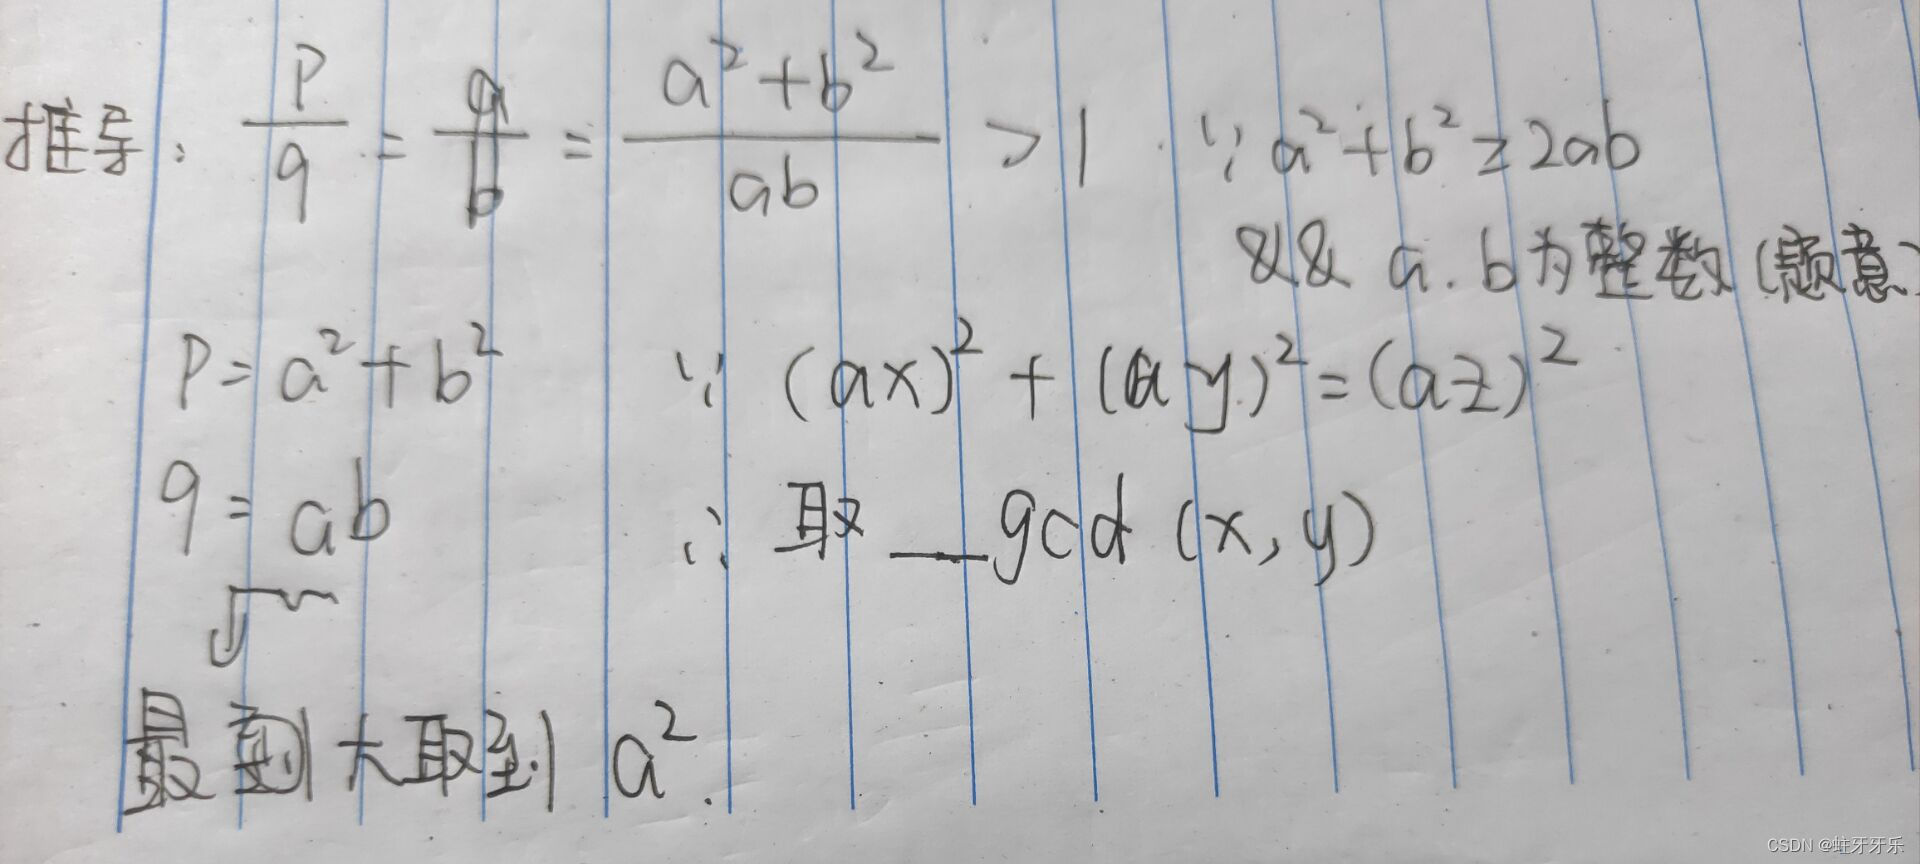 推导: p/q = a/b = (a²+b²)/(ab) > 1 ∵ a²+b² ≥ 2ab
&& a.b为整数(题意)
P = a²+b² ∵ (ax)²+(ay)²=(az)²
q = ab ∴ 取 __gcd(x,y)
最到大取到 a².
CSDN @蛀牙牙乐